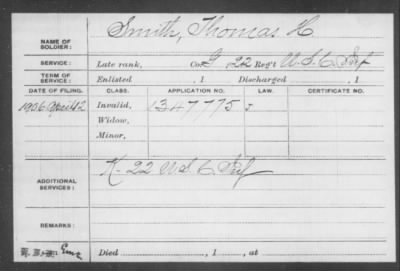 NAME OF SOLDIER: Smith, Thomas H.
SERVICE: Late rank, Co. G, 22 Reg't U.S.C. Inf
TERM OF SERVICE: Enlisted , 1 Discharged , 1
DATE OF FILING. CLASS. APPLICATION NO. LAW. CERTIFICATE NO.
1906 April 12 Invalid, 1347775
Widow,
Minor,
ADDITIONAL SERVICES: K- 22 U.S.C. Inf
REMARKS:
Died , 1 , at